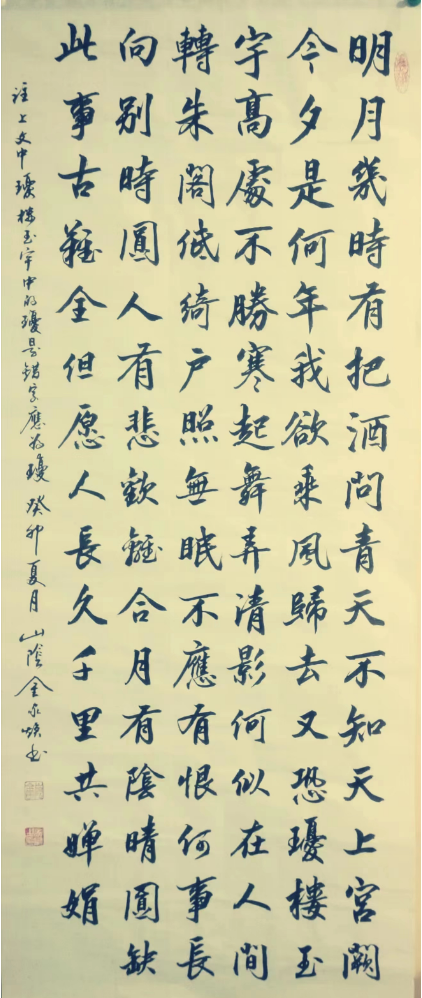 明月幾時有把酒問青天不知天上宮闕
今夕是何年我欲乘風歸去又恐瓊樓玉
宇高處不勝寒起舞弄清影何似在人間
轉朱閣低綺户照無眠不應有恨何事長
向别時圓人有悲歡離合月有陰晴圓缺
此事古難全但愿人長久千里共嬋娟
註上文中瓊樓玉宇中的瓊是錯字應为瓊 癸卯夏月 山陰金永书